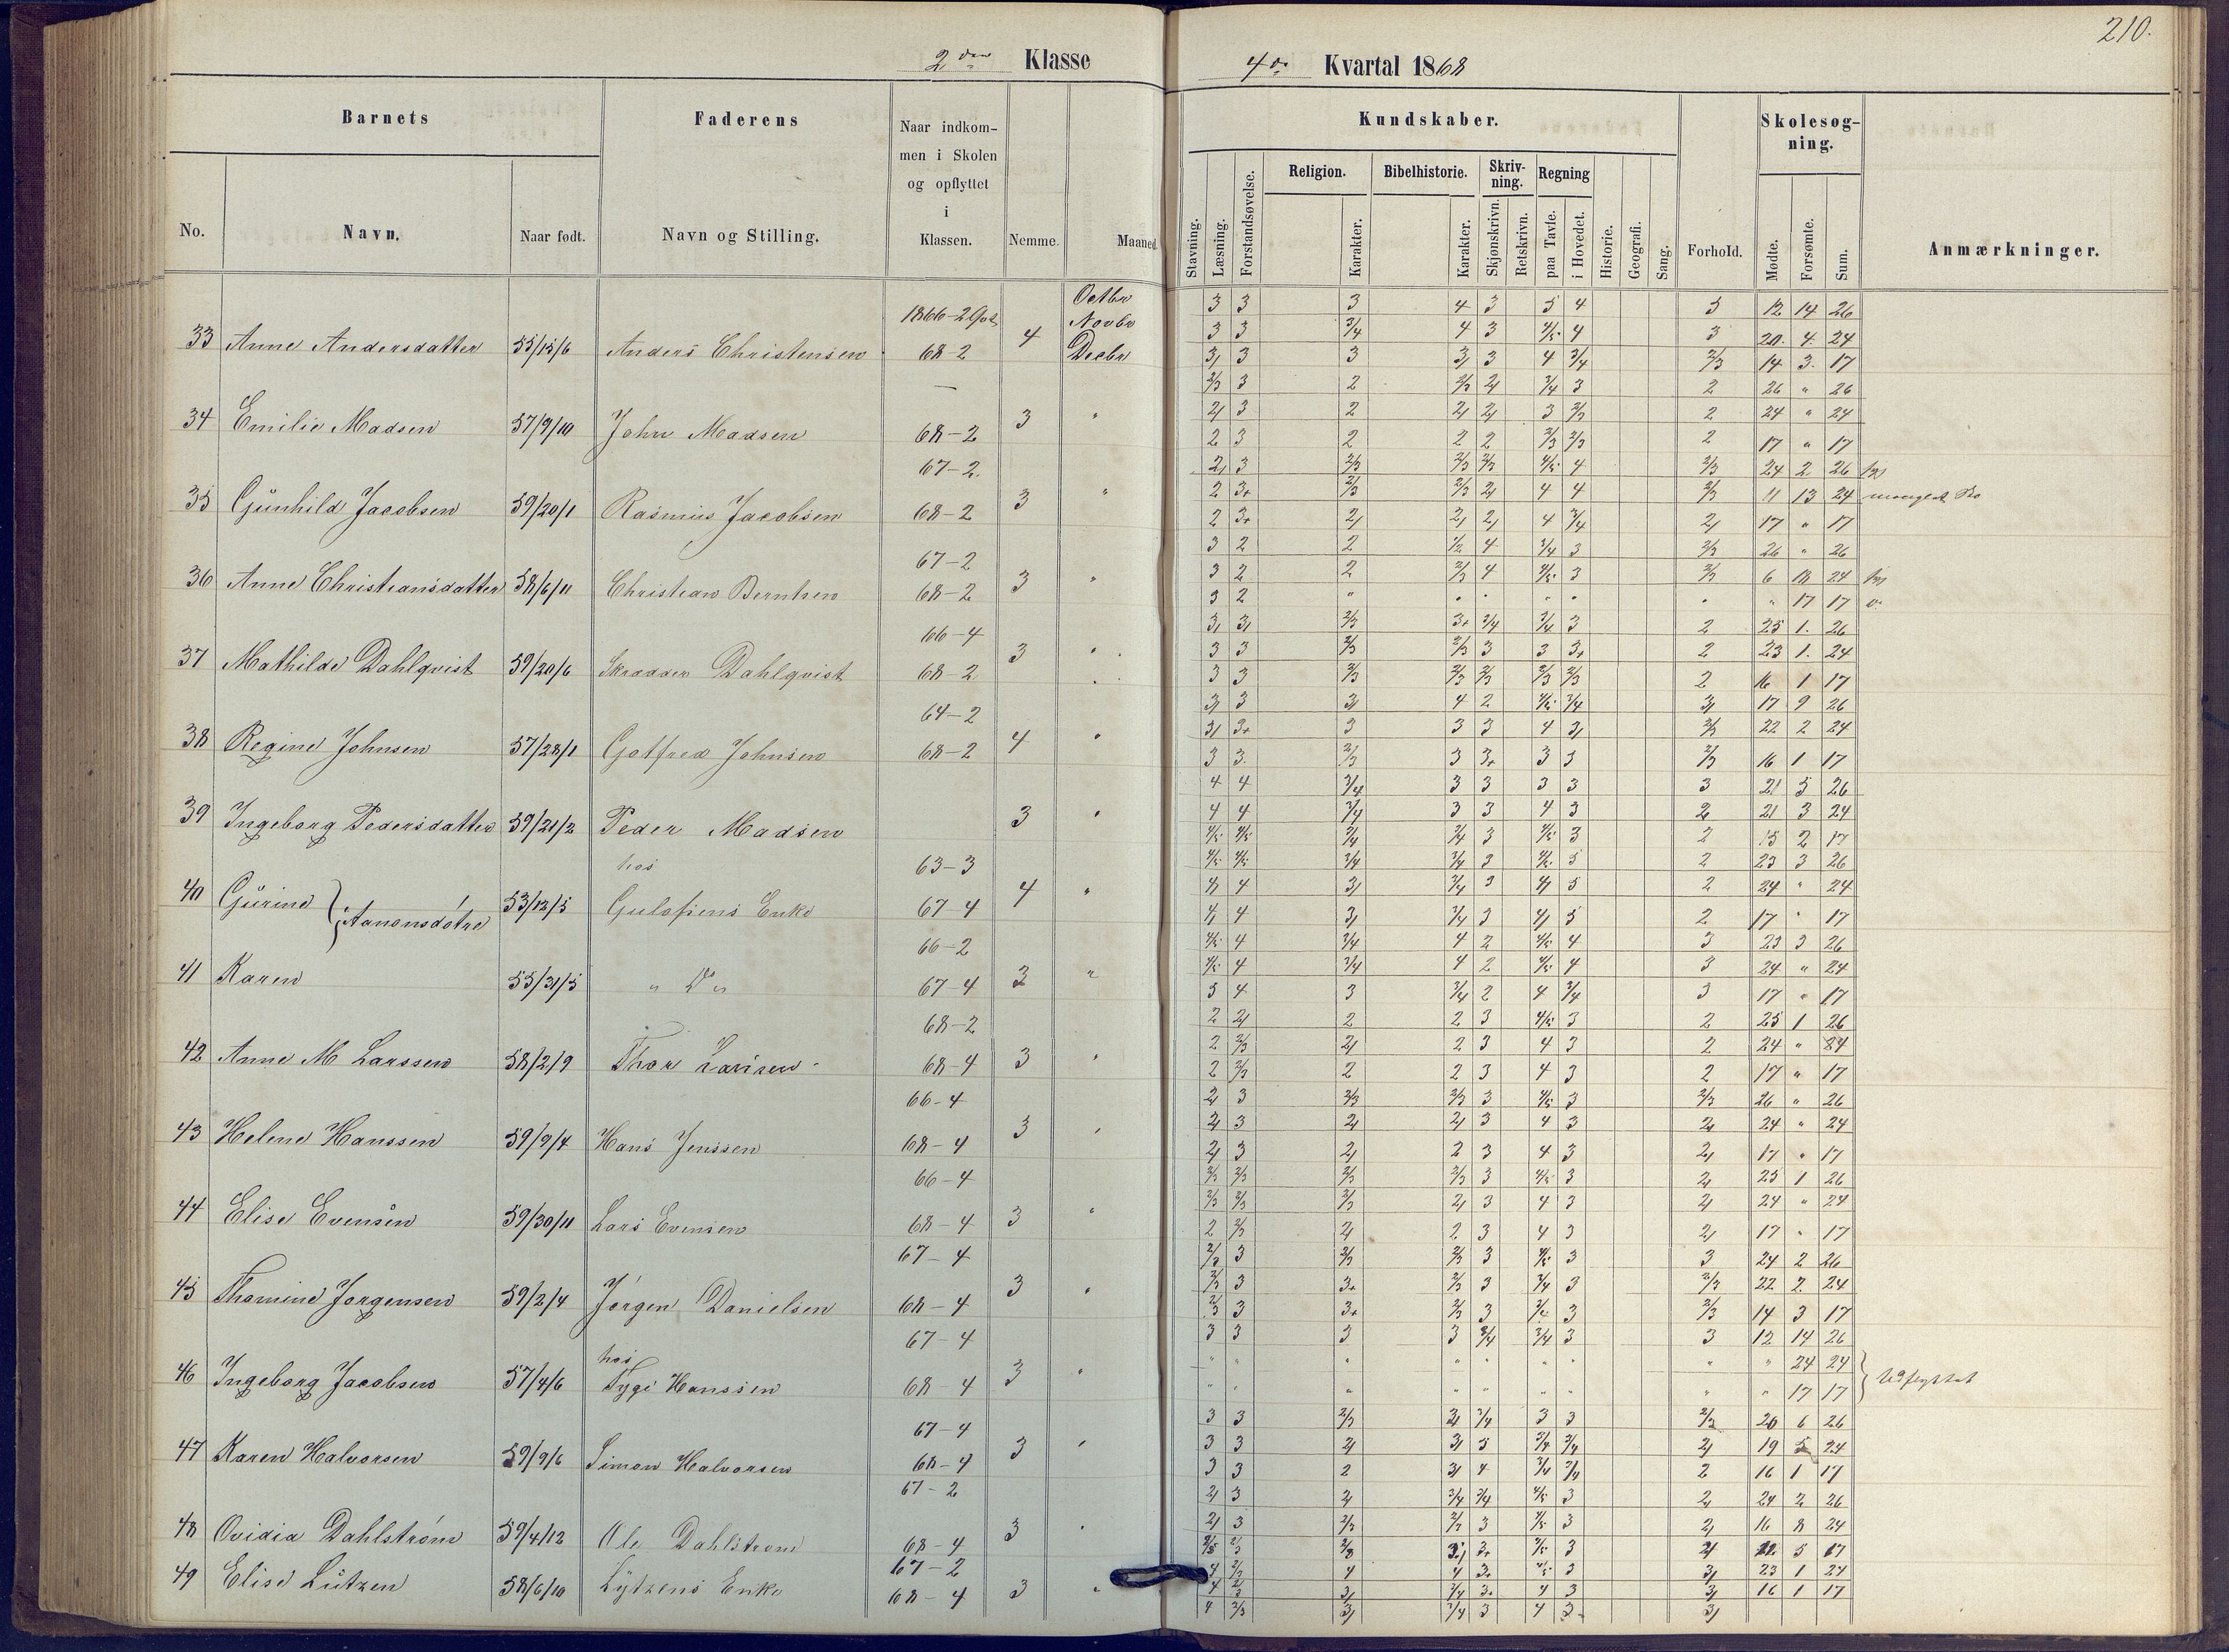 210.
2den Klasse
4de Kvartal 1868
Barnets
Faderens
Naar indkom-
men i Skolen
og opflyttet
i
Klassen.
No.
Navn.
Naar født.
Navn og Stilling.
Nemme.
Maaned.
Kundskaber.
Stavning.
Læsning.
Forstandsøvelse.
Religion.
Karakter.
Bibelhistorie.
Karakter.
Skriv-
ning.
Skjønskrivn.
Retskrivn.
Regning
paa Tavle.
i Hovedet.
Historie.
Geografi.
Sang.
Forhold.
Skolesøg-
ning.
Mødte.
Forsømte.
Sum.
Anmærkninger.
Octbr
Novbr
33 Anne Andersdatter 55/15/6 Anders Christensen 68-2 4 Decbr
34 Emilie Madsen 57/9/10 John Madsen 68-2 3 "
67-2
35 Gunhild Jacobsen 59/20/1 Rasmus Jacobsen 68-2 3 "
67-2
36 Anne Christiansdatter 58/6/11 Christian Berntsen 68-2 3 "
66-4
37 Mathilde Dahlqvist 59/20/6 Skrædder Dahlqvist 68-2 3 "
64-2
38 Regine Johnsen 57/28/1 Gotfred Johnsen 68-2 4 "
39 Ingeborg Pedersdatter 59/21/2 Peder Madsen 3 "
hos 63-3
40 Gurine } Aanonsdøtre 53/12/5 Gulofsens Enke 67-4 4 "
66-2
41 Karen 55/31/5 " Do " 67-4 3 "
68-2
42 Anne M Larssen 58/2/9 Thor Larssen 68-4 3 "
66-4
43 Helene Hanssen 59/9/4 Hans Jenssen 68-4 3 "
66-4
44 Elise Evensen 59/30/11 Lars Evensen 68-4 3 "
67-4
45 Thomine Jorgensen 59/2/4 Jörgen Danielsen 68-4 3 "
67-4
hos
46 Ingeborg Jacobsen 57/4/6 Tygi Hanssen 68-4 3 "
67-4
47 Karen Halvorsen 59/9/6 Simon Halvorsen 68-4 3 "
67-2
48 Ovidia Dahlström 59/4/12 Ole Dahlstrom 68-4 3 "
67-2
49 Elise Lützen 58/6/10 Lytzens Enke 68-4 3 "
3 3 3 4 3 5 4 3 12 14 26
3 3 3/4 4 3 4/5 4 3 20 4 24
3 3 3 3 3 4 3/4 2/3 14 3 17
2/3 3 2 2/3 2 3/4 3 2 26 " 26
2 3 2 2 2 3 2/3 2 24 " 24
2 3 2 2 2 2/3 2/3 2 17 " 17
2 3 2/3 2/3 2/3 4/5 4 2/3 24 2 26
2 3+ 2/3 2/3 2 4 4 2/3 11 13 24
2 3+ 2 2 2 4 3/4 2 17 " 17
3 2 2 1/2 4 3/4 3 2/3 26 " 26
3 2 2 2/3 4 4/5 3 2/3 6 18 24
3 2 " " " " " " " 17 17
3 3 2/3 3+ 3/4 3/4 3 2 25 1 26
3 3 2/3 2/3 3 3 3+ 2 23 1 24
3 3 2/3 2/3 2/3 2/3 2/3 2 16 1 17
3 3 3 4 2 4/5 3/4 3 17 9 26
3 3+ 3 3 3 4 3 2/3 22 2 24
3 3 2/3 3 3+ 3 3 2/3 16 1 17
4 4 3/4 3 3 3 3 3 21 5 26
4 4 3/4 3 3 4 3 2 21 3 24
4/5 4/5 3/4 3/4 3 4/5 3 2 15 2 17
4/5 4/5 3/4 3/4 3 4/5 5 2 23 3 26
4 4 3 3/4 3 4 5 2 24 " 24
4 4 3 3/4 3 4 5 2 17 " 17
4/5 4 3/4 4 2 4/5 4 3 23 3 26
4/5 4 3/4 4 2 4/5 4 3 24 " 24
5 4 3 3/4 2 4 3/4 3 17 " 17
2 2 2 2 3 4/5 3 2 25 1 26
2 2/3 2 2 3 4 3 2 24 " 24
2 2/3 2 2 3 4 3 2 17 " 17
2 3 2/3 2/3 3 4/5 3 2/3 26 " 26
2 3 2 2 3 4 3 2 24 " 24
2 3 2 2 3 4 3 2 17 " 17
2/3 2/3 2/3 2/3 3 4/5 3 2 25 1 26
2/3 2/3 2/3 2 3 4 3 2 24 " 24
2 2/3 2 2 3 4 3 2 17 " 17
2/3 3 2/3 2/3 3 4/5 3 3 24 2 26
2/3 3 3+ 2/3 3 3/4 3 2/3 22 2 24
2/3 3 3+ 2/3 3 3 2/3 14 3 17
3 3 3 3 3/4 3/4 3 3 12 14 26
" " " " " " " " " 24 24
" " " " " " " " " 17 17 } Udflyttet
3 3 2/3 3 3/4 3 3 2/3 20 6 26
3 3 2 3 3 3/4 3/4 2 19 5 24
3 3 2 3 4 3/4 3/4 2 16 1 17
2 3 2 3/4 3/4 4/5 3 2 24 2 26
2 3 2/3 2/3 3 4/5 3 2 16 8 24
3 2 12 5 17
4 2/3 4 4 3+ 4/5 3 3 23 1 24
4 2/3 3 3/4 3+ 4 3 3 16 1 17
4 2/3 3 3/4 3 4 3 3